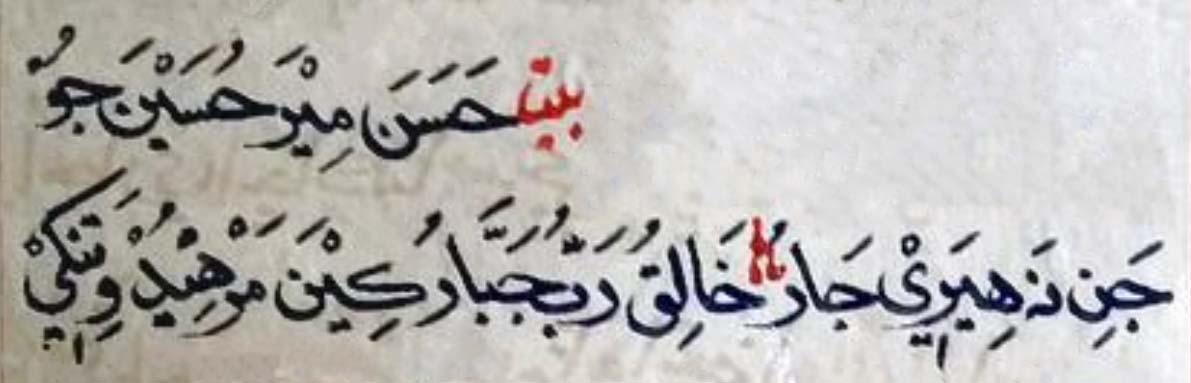 بيت حَسَنَ مِيْرَ حُسَيْنَ جوُ
جَنِ نَه هِيَرِيْ جَارُ خَالِقُ رَبُّ جَبَّارُ كِيْنَ مَرْهِيْدُوْ تَنِكَيْ